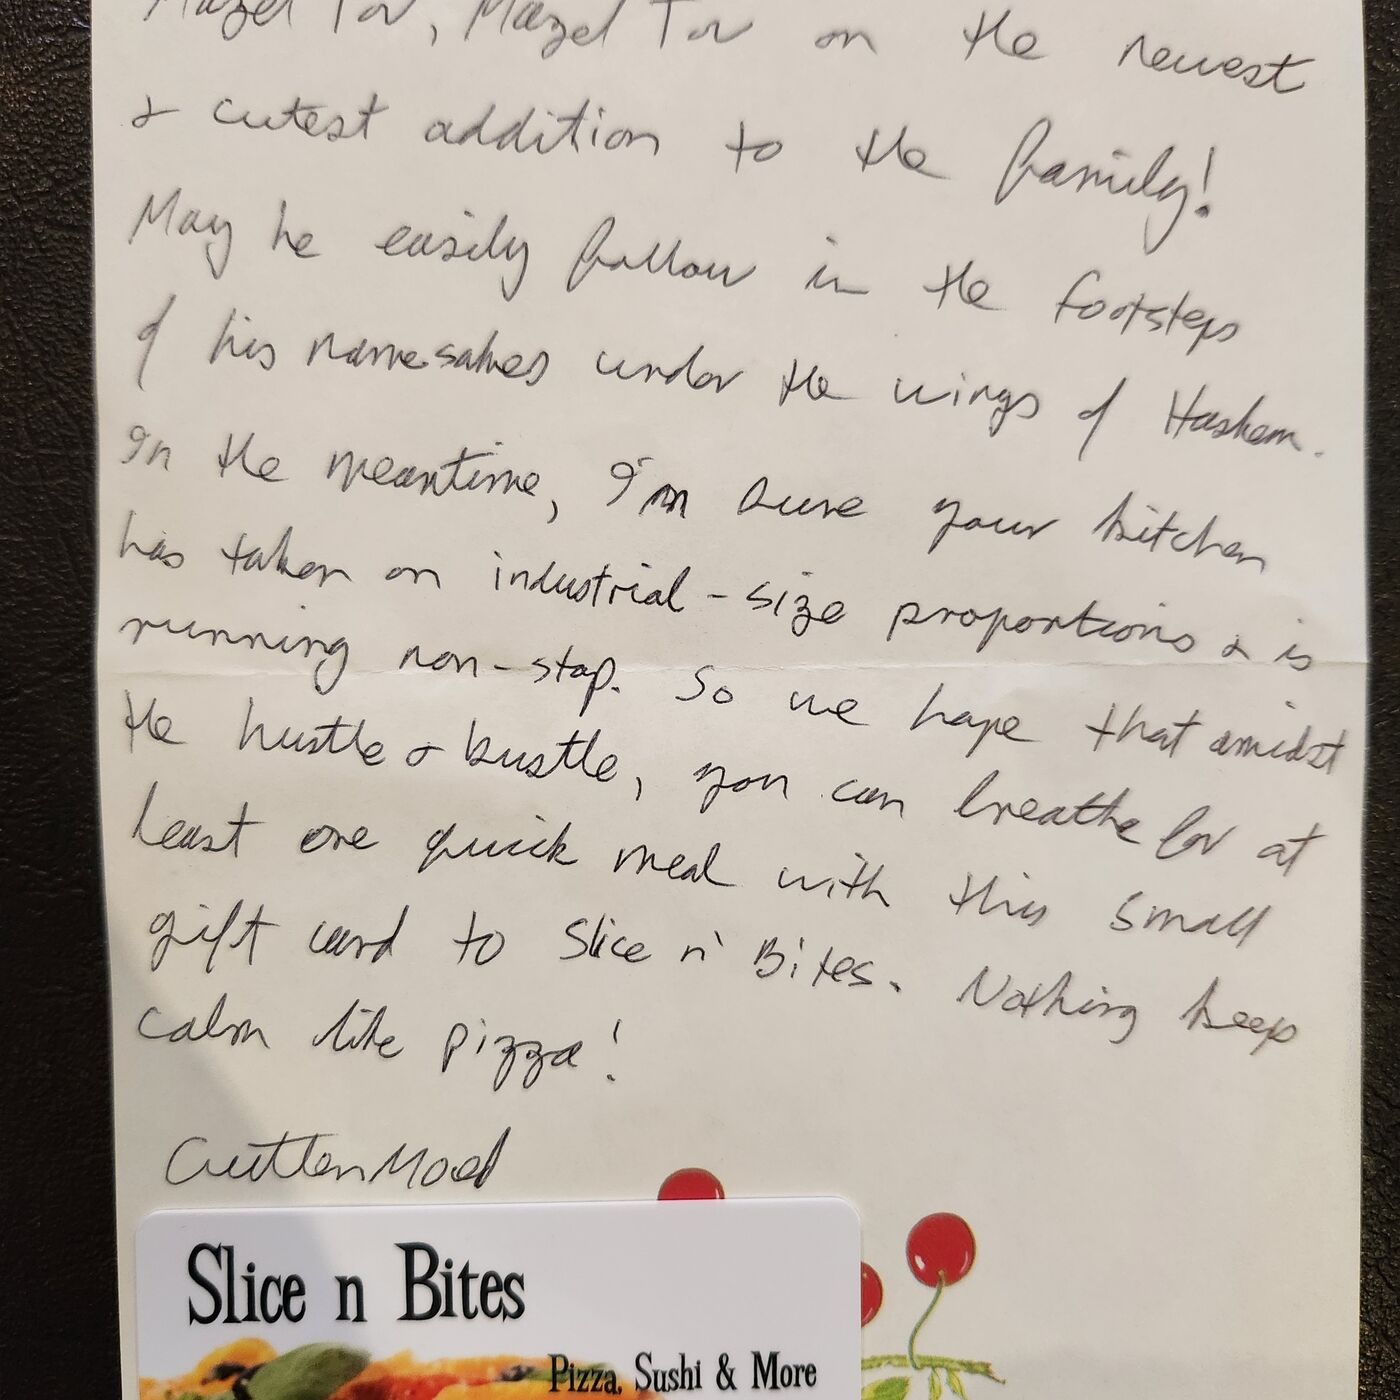 Mazel Tov, Mazel Tov on the newest
& cutest addition to the family!
May he easily follow in the footsteps
of his namesakes under the wings of Hashem.
In the meantime, I'm sure your kitchen
has taken on industrial-size proportions & is
running non-stop. So we hope that amidst
the hustle & bustle, you can breathe for at
least one quick meal with this small
gift card to Slice n' Bites. Nothing keep
calm like pizza!
Slice n Bites
Pizza, Sushi & More